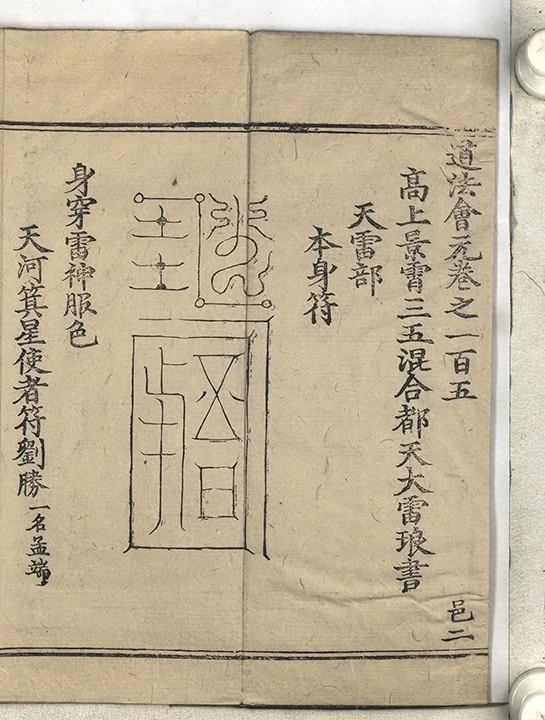 道法會元卷之一百五
邑二
高上景霄三五混合都天大雷琅書
天雷部
本身符
身穿雷神服色
天河箕星使者符劉勝一名孟端